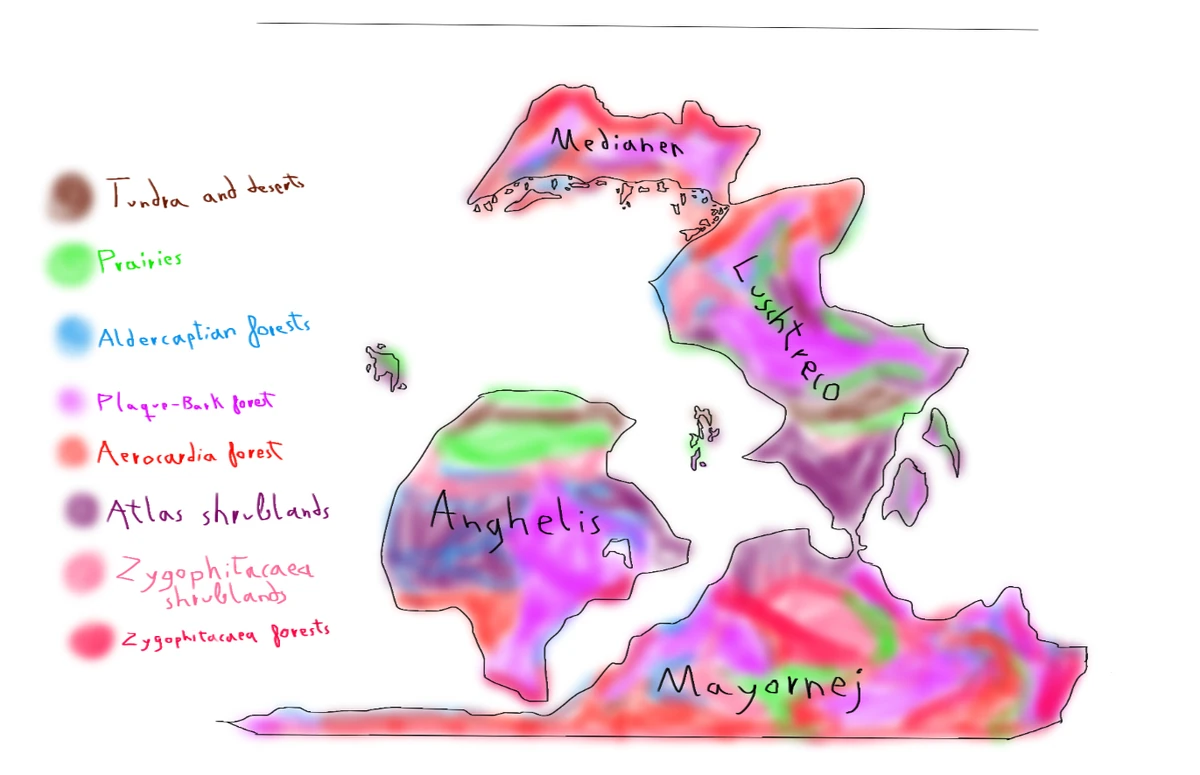 Medianen
Tundra and deserts
Prairies
Luschtreco
Aldercaptian forests
Plaque-Bark forest
Aerocardia forest
Atlas shrublands
Anghelis
Zygophitacaea
shrublands
Zygophitacaea forests
Mayornej